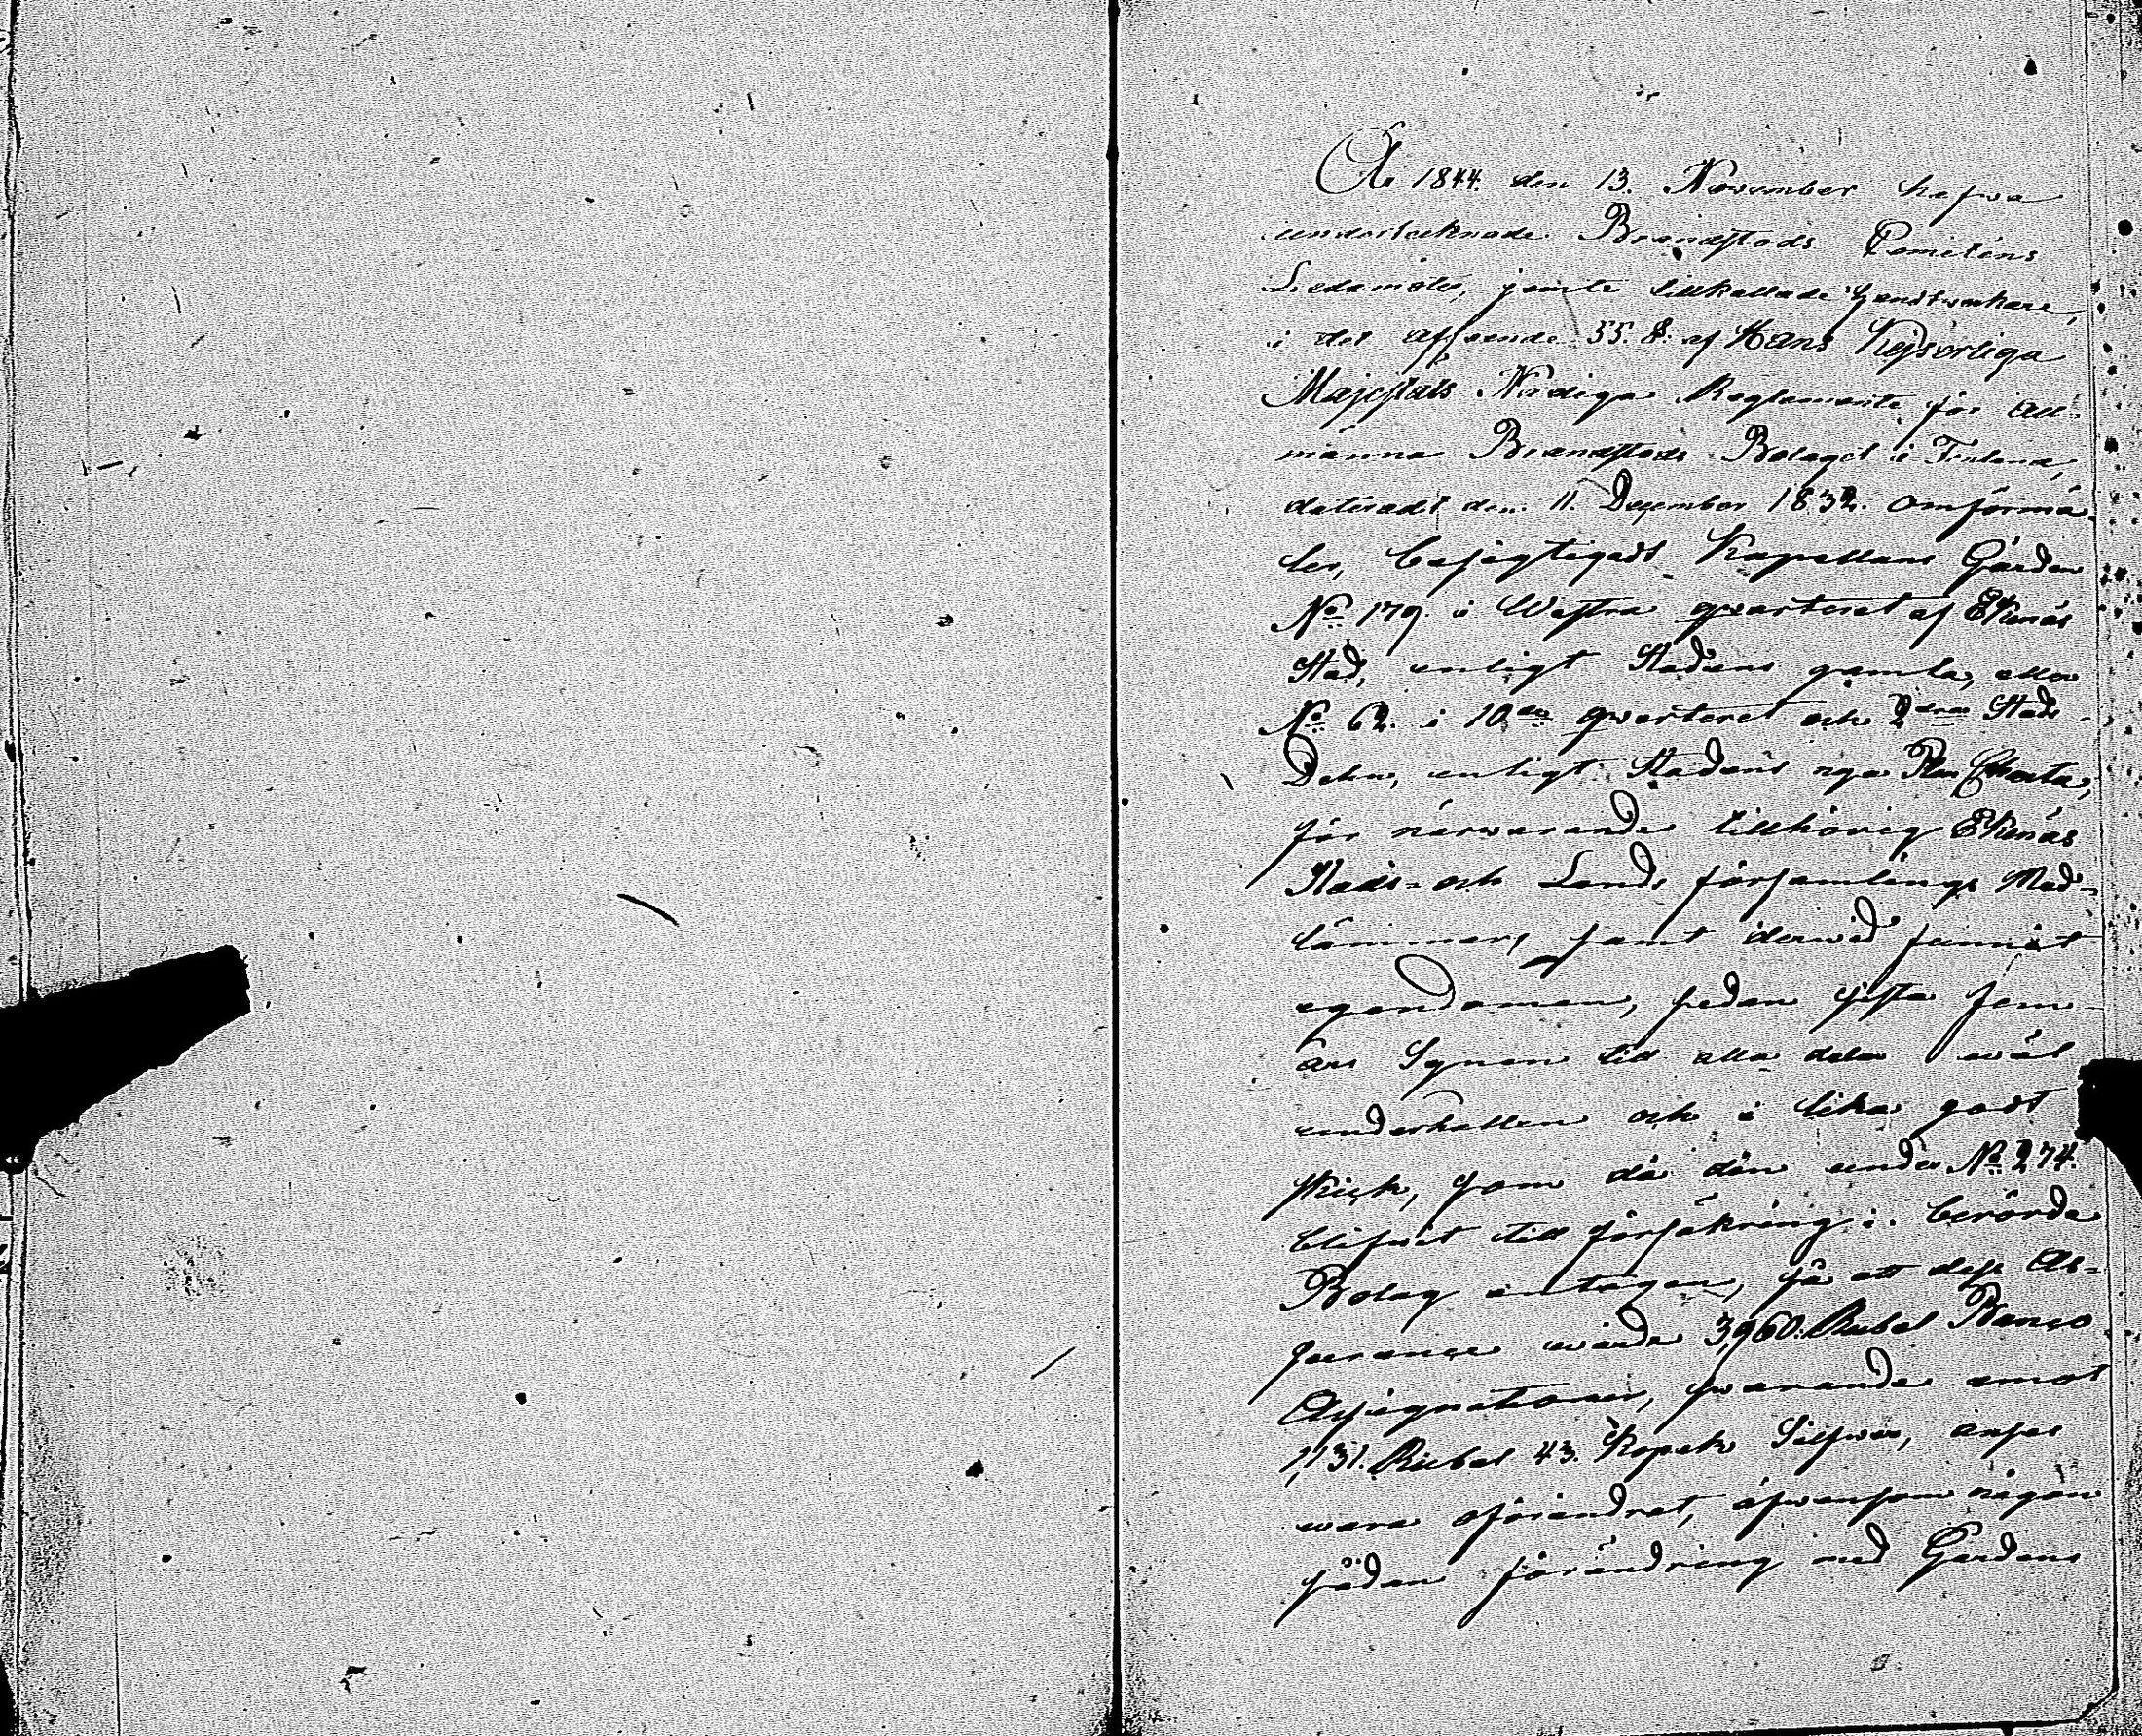 År 1844. den 13. November hafwa
undertecknade Brandstods Comiténs
Ledamöter, jemte tillkallade Handtverkare,
i det afseende 55. §. af Hans Kejserliga
Majestäts Nådiga Reglemente för All-
männa Brandstods Bolaget i Finland,
dateradt den 11. December 1832. omförmä-
ler, besigtigadt Kapellans Gården
No 179 i Westra qwarteret af Ekenäs
Stad, enligt Stadens gamla, eller
No 62. i 10de qwarteret och 2dra Stads
Delen, enligt Stadens nya Plan Charta,
för närwarande tillhörig Ekenäs
Stads- och Lands församlings Med-
lemmar, samt derwid funnit
egendomen, sedan sista fem
års Synen till alla delar wäl
underhållen och i lika godt
skick, som då den under No 274.
blifwit till försäkring i berörde
Bolag intagen, så att dess As-
surance wärde 3,960. Rubel Banco
Assignationer, swarande emot
1,131. Rubel 43. Kopek Silfwer, anses
wara oförändrat, äfwensom någon
sådan förändring med Gårdens